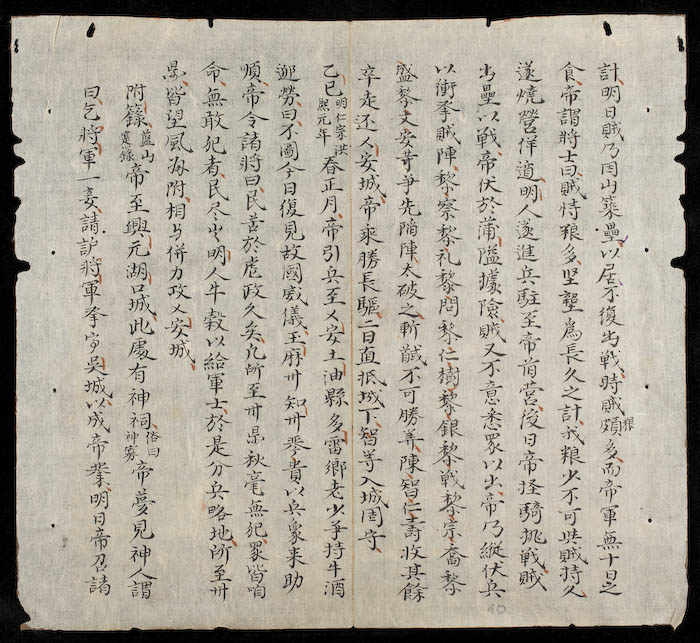 計明日賊乃因山築壘以居不復出戰時賊粮頗多而帝軍無十日之
食帝謂將士曰賊恃粮多坚壘爲長久之計我粮少不可與賊持久
遂燒營佯遁明人遂進兵駐至帝前營後日帝騎挑戰賊
出壘以戰帝伏於蒲隘據險賊又不意悉眾以出帝乃縱伏兵
以衝擊賊陣黎察黎礼黎問黎仁樹黎銀黎戰黎宗喬黎
盛黎文安等爭先陷陣大破之斬馘不可勝算陳智仁壽收其餘
卒走还乂安城帝乘勝長驅二日直抵城下智等入城固守
乙巳明仁宗洪熙元年春正月帝引兵至乂安土油縣多雷鄉老少爭持牛酒
迎勞曰不圖今日復見故國威儀玉麻州知州琴貴以兵象来助
順帝令諸將曰民苦於虐政久矣凢所至州県秋毫無犯眾皆
命無敢犯者民尽出明人牛穀以給軍士於是分兵略地所至州
県皆望風歸附相与併力攻乂安城
附籙藍山寔錄帝至興元湖口城此處有神祠俗曰神寮帝夢見神人謂
曰乞將軍一妾請护將軍擊吳城以成帝業明日帝召諸